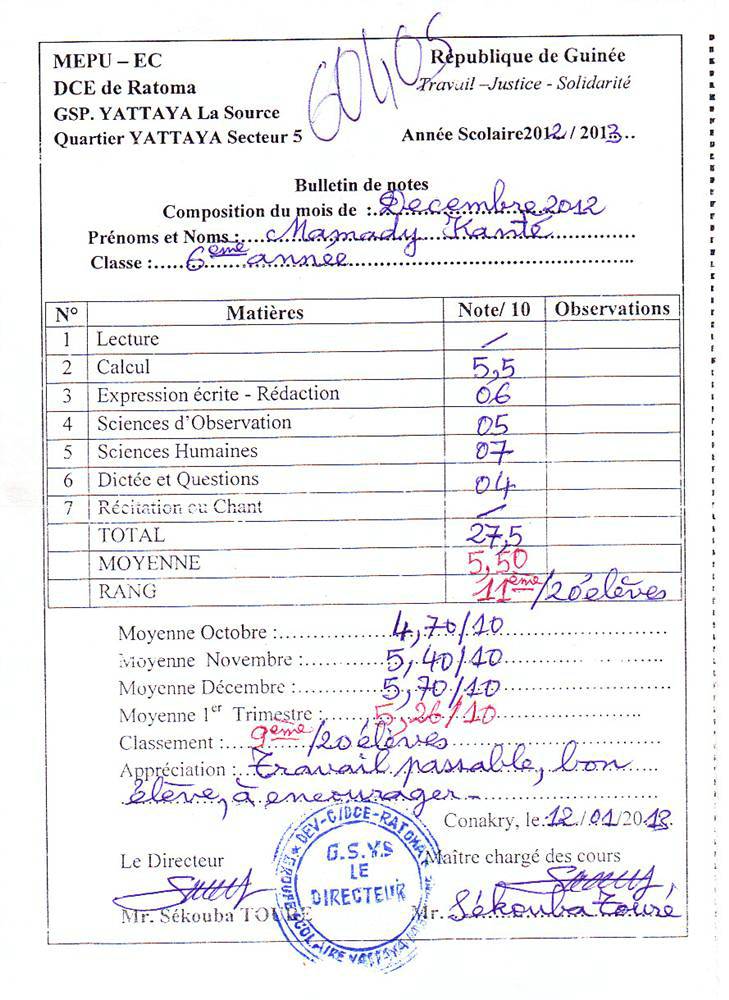 60405
MEPU – EC
République de Guinée
DCE de Ratoma
Travail –Justice - Solidarité
GSP. YATTAYA La Source
Quartier YATTAYA Secteur 5
Année Scolaire2012 / 2013..
Bulletin de notes
Composition du mois de :.Decembre 2012
Prénoms et Noms :....Mamady Kanté
Classe :.....6ème année
N° Matières Note/ 10 Observations
1 Lecture /
2 Calcul 5,5
3 Expression écrite - Rédaction 06
4 Sciences d'Observation 05
5 Sciences Humaines 07
6 Dictée et Questions 04
7 Récitation ou Chant /
TOTAL 27,5
MOYENNE 5,50
RANG 11ème/20 élèves
Moyenne Octobre :..... 4,70/10
Moyenne Novembre :..... 5,40/10
Moyenne Décembre :..... 5,70/10
Moyenne 1er Trimestre :..... 5,26/10
Classement :.... 9ème/20 élèves
Appréciation :.. Travail passable, bon
élève, à encourager -
Conakry, le.12./01/2013.
Le Directeur
Maître chargé des cours
Mr. Sékouba TOURE
Mr. Sékouba Touré
DEV-C/DCE-RATOMA
G.S.Y.S
LE
DIRECTEUR